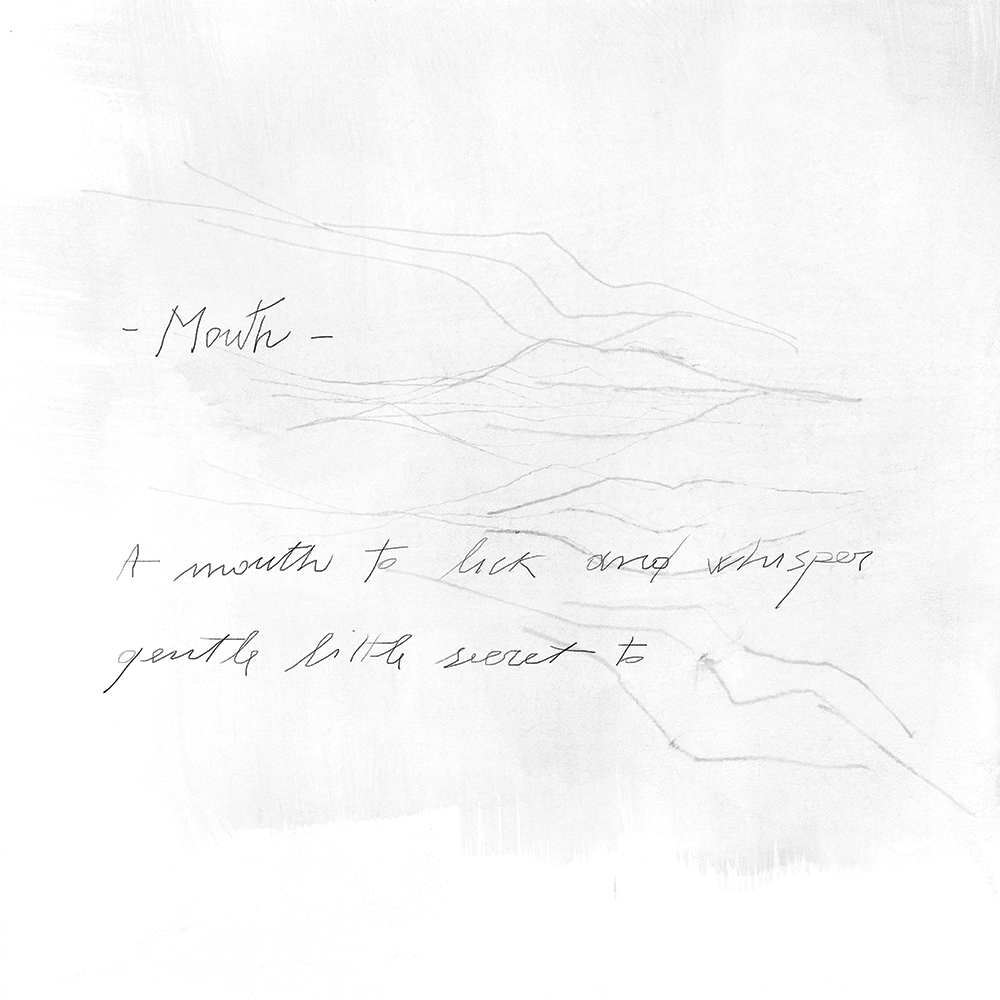 - Mouth -
A mouth to lick and whisper
gentle little secret to